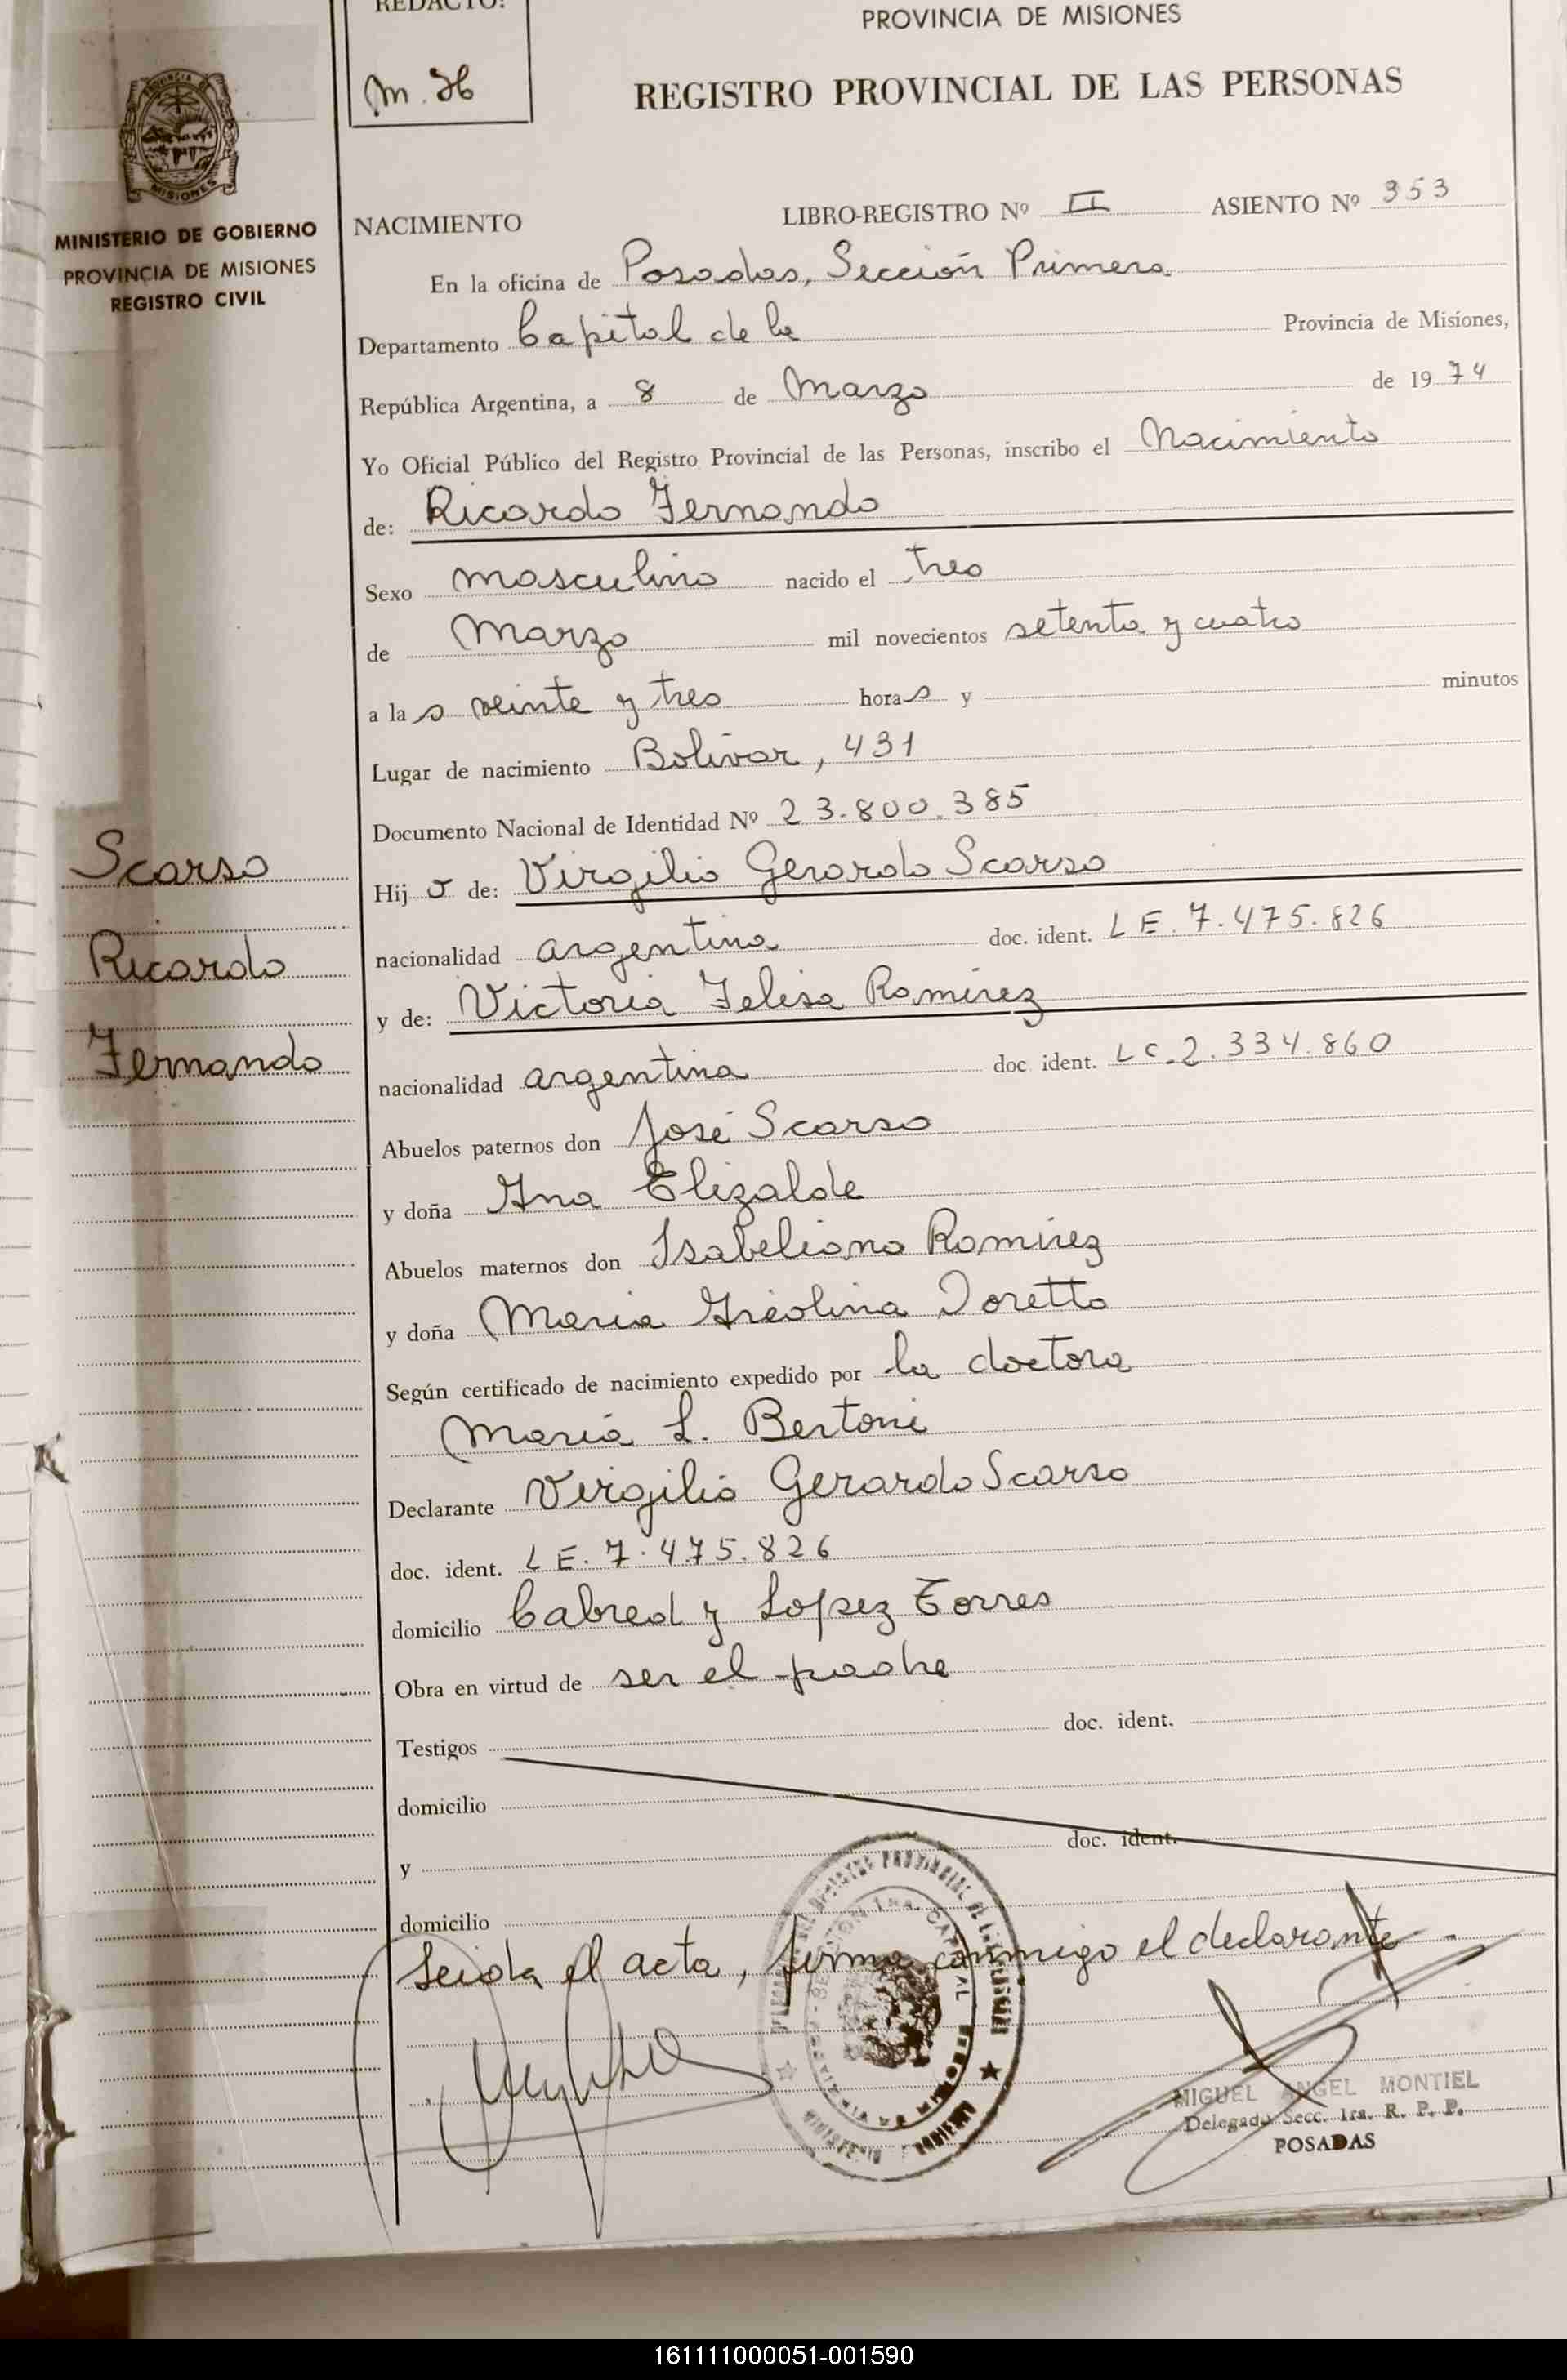 REDACTO:
M. H
PROVINCIA DE MISIONES
REGISTRO PROVINCIAL DE LAS PERSONAS
MISIONES
MINISTERIO DE GOBIERNO
PROVINCIA DE MISIONES
REGISTRO CIVIL
NACIMIENTO LIBRO-REGISTRO Nº II ASIENTO Nº 353
En la oficina de Posadas, Sección Primera
Departamento Capital de la Provincia de Misiones,
República Argentina, a 8 de Marzo de 1974
Yo Oficial Público del Registro Provincial de las Personas, inscribo el Nacimiento
de: Ricardo Fernando
Sexo masculino nacido el tres
de Marzo mil novecientos setenta y cuatro
a las veinte y tres horas y minutos
Lugar de nacimiento Bolívar, 431
Documento Nacional de Identidad Nº 23.800.385
Scarso
Ricardo
Fernando
Hijo de: Virgilio Gerardo Scarso
nacionalidad argentina doc. ident. LE. 7.475.826
y de: Victoria Felisa Ramírez
nacionalidad argentina doc ident. LC. 2.334.860
Abuelos paternos don José Scarso
y doña Ana Elizalde
Abuelos maternos don Isabeliano Ramírez
y doña María Doretto
Según certificado de nacimiento expedido por la doctora
María L. Bertoni
Declarante Virgilio Gerardo Scarso
doc. ident. LE. 7.475.826
domicilio Cabred y Lopez Torres
Obra en virtud de ser el padre
Testigos doc. ident.
domicilio
y doc. ident.
domicilio
Leida el acta, firma conmigo el declarante.
MIGUEL ANGEL MONTIEL
Delegado Secc. 1ra. R. P. P.
POSADAS
161111000051-001590